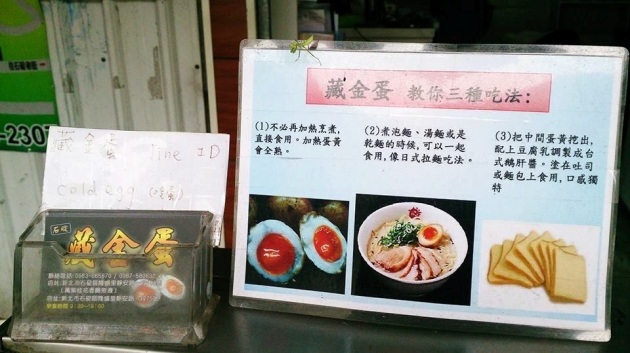 -2307
藏金蛋 line ID
cold egg
藏金蛋
藏金蛋 教你三種吃法:
(1)不必再加熱烹煮,
直接食用。加熱蛋黃
會全熟。
(2)煮泡麵、湯麵或是
乾麵的時候,可以一起
食用,像日式拉麵吃法。
(3)把中間蛋黃挖出,
配上豆腐乳調製成台
式鵝肝醬。塗在吐司
或麵包上食用,口感獨
特